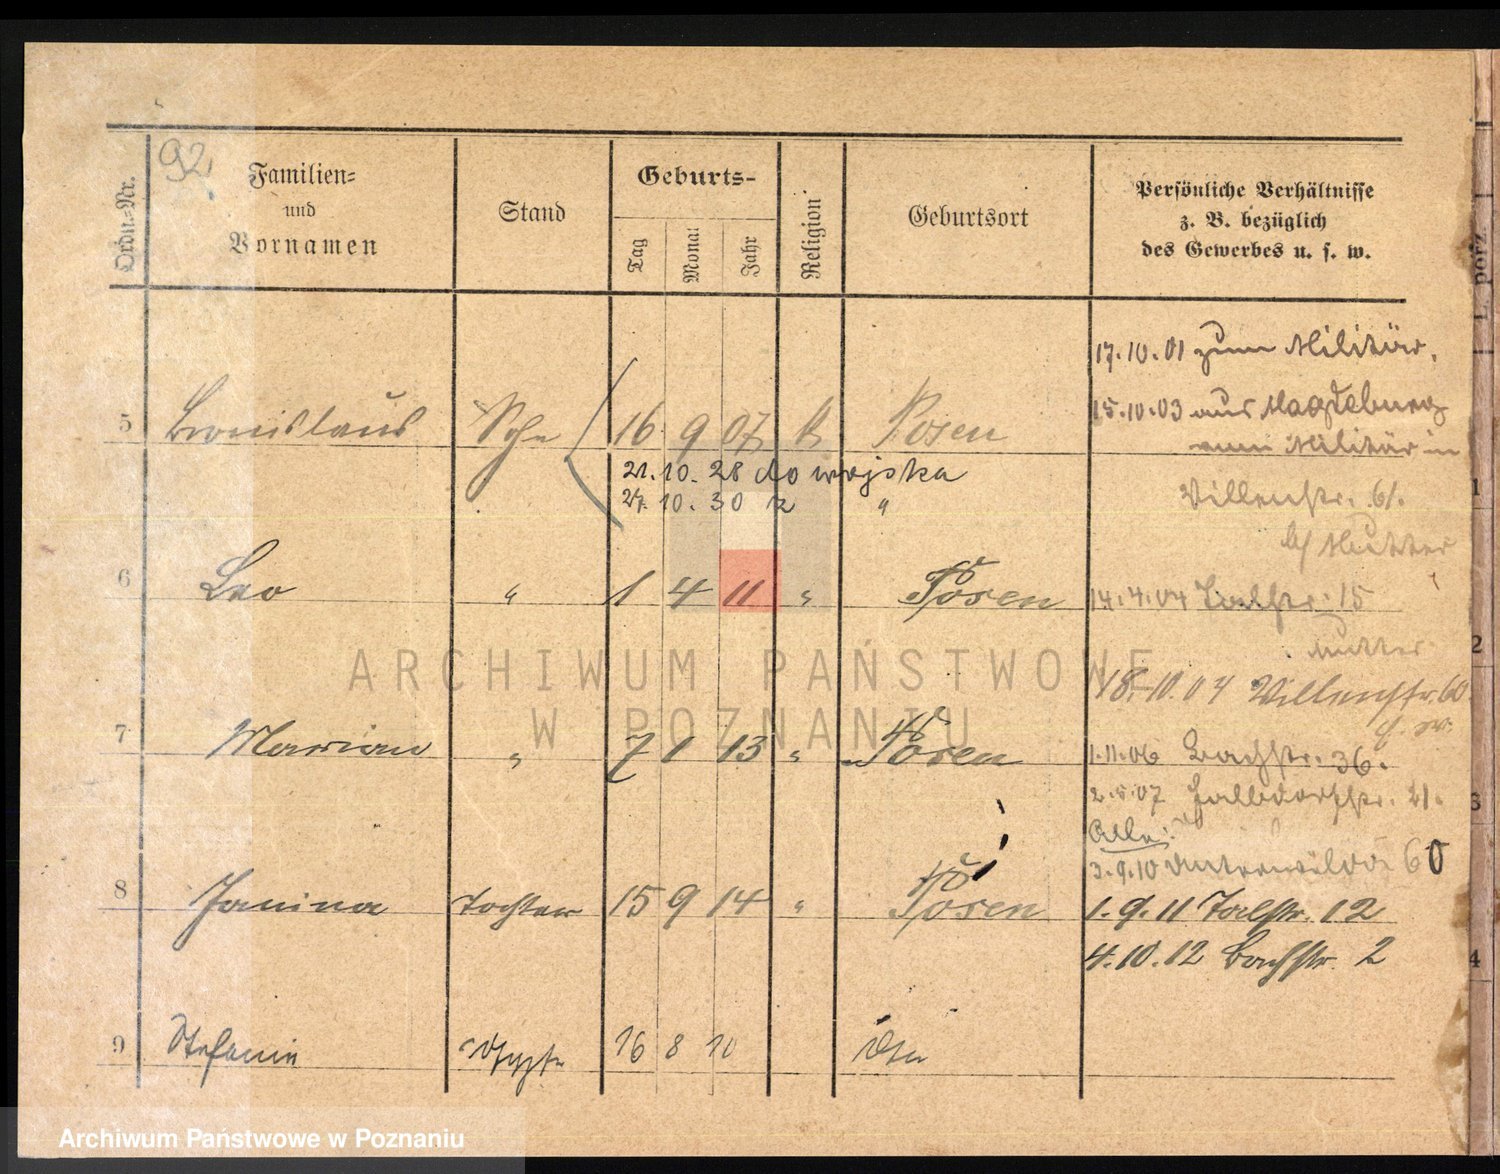 92
Ordn.-Nr.
Familien-
und
Vornamen
Stand
Geburts-
Tag
Monat
Jahr
Religion
Geburtsort
Persönliche Verhältnisse
z. B. bezüglich
des Gewerbes u. s. w.
17.10.01 zum Militär.
15.10.03 aus Magdeburg
vom Militär in
5 Bronislaus Sohn 16 9 07 k Posen
21.10.28 do wojska
27.10.30 z "
Villenstr. 61.
b/ Mutter
6 Leo " 1 4 11 " Posen
14.4.04 Talstr. 15
Mutter
18.10.04 Villenstr. 60
7 Marian " 7 1 13 " Posen
1.11.06 Bachstr. 36.
2.5.07 21.
Alle:
3.9.10 Unterwilda 60
8 Janina Tochter 15 9 14 " Posen
1.9.11 Talstr. 12
4.10.12 Bachstr. 2
9 Stefanie 16 8 10
ARCHIWUM PAŃSTWOWE
W POZNANIU
Archiwum Państwowe w Poznaniu
1
2
3
4